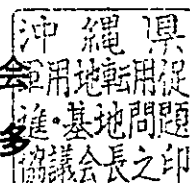 沖縄県
軍用地転用促
進・基地問題
協議会長之印
会
多